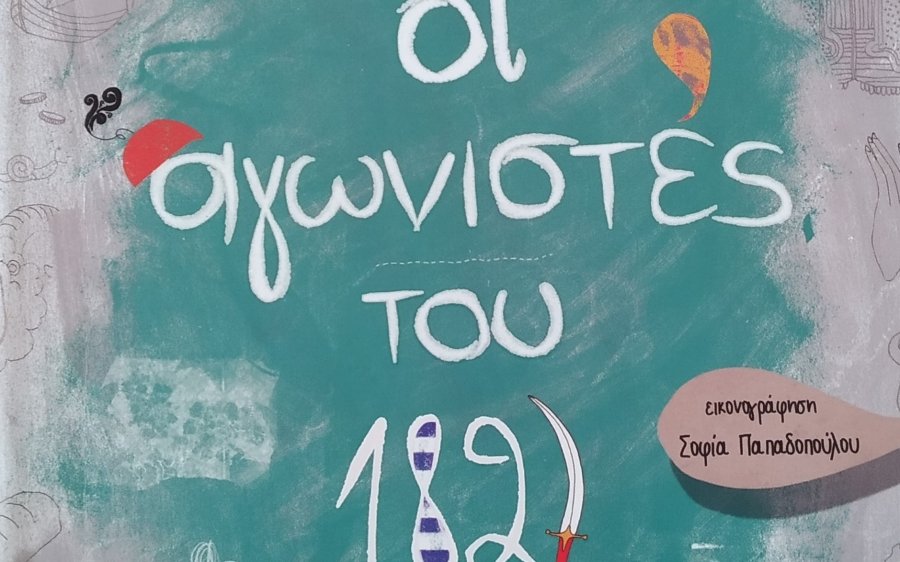 οι
αγωνιστές
του
1821
εικονογράφηση
Σοφία Παπαδοπούλου